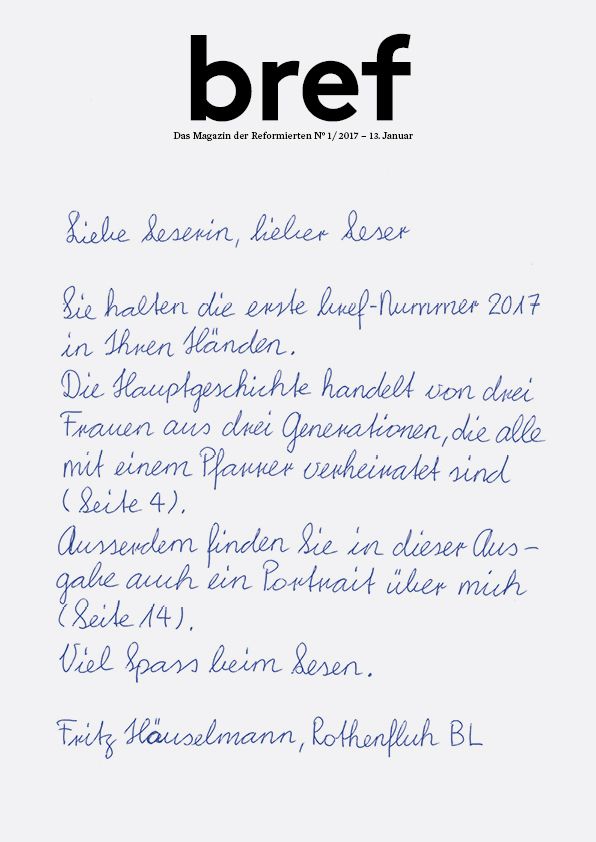 bref
Das Magazin der Reformierten Nº 1/2017 – 13. Januar
Liebe Leserin, lieber Leser
Sie halten die erste bref-Nummer 2017
in Ihren Händen.
Die Hauptgeschichte handelt von drei
Frauen aus drei Generationen, die alle
mit einem Pfarrer verheiratet sind
(Seite 4).
Ausserdem finden Sie in dieser Aus-
gabe auch ein Portrait über mich
(Seite 14).
Viel Spass beim Lesen.
Fritz Häuselmann, Rothenfluh BL